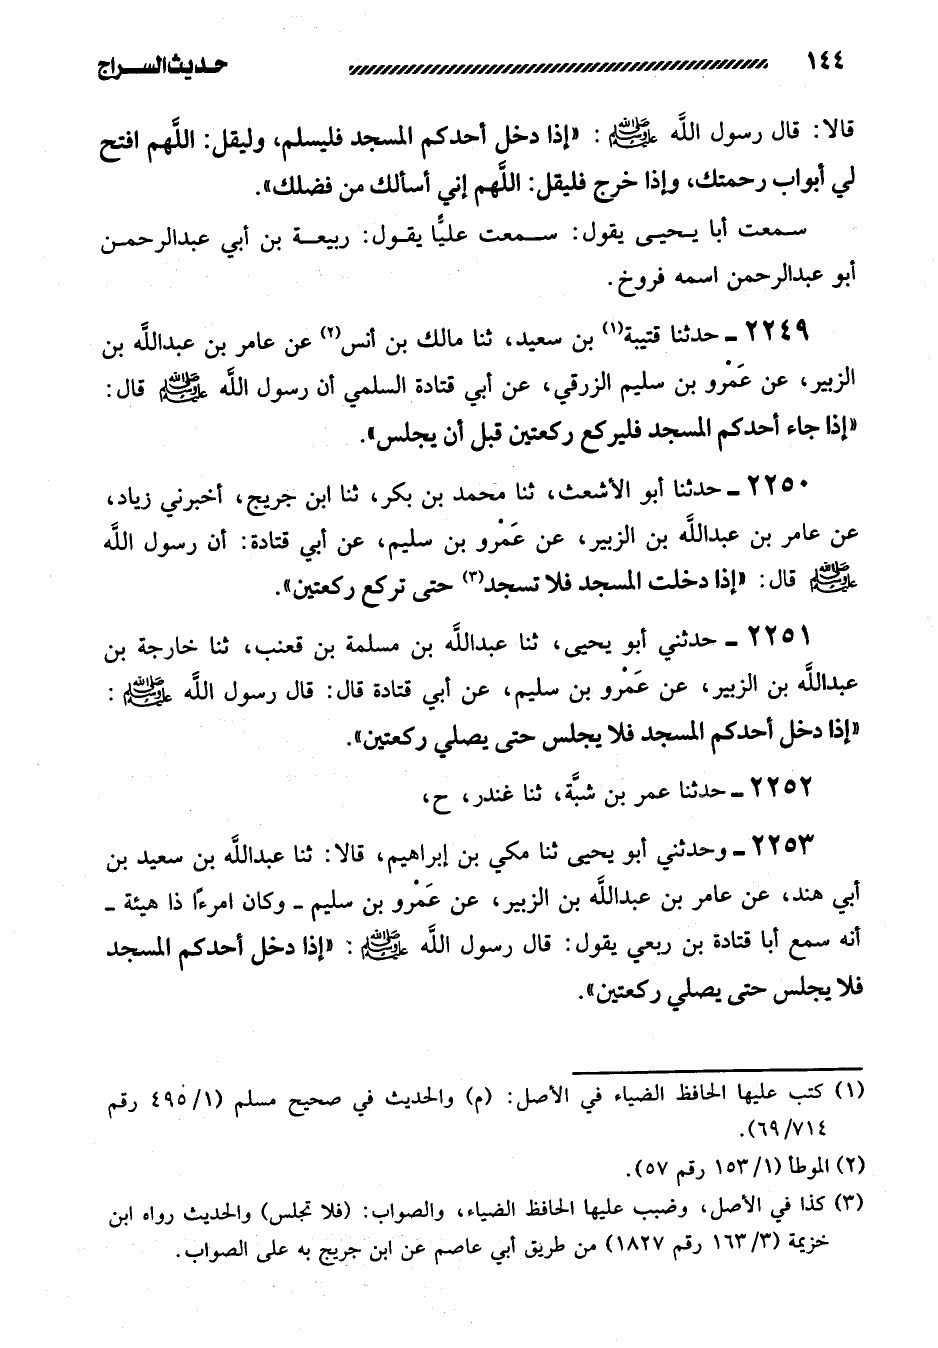 ١٤٤ حديث السراج
قالا: قال رسول اللَّه ﷺ : «إذا دخل أحدكم المسجد فليسلم، وليقل: اللَّهم افتح
لي أبواب رحمتك، وإذا خرج فليقل: اللَّهم إني أسألك من فضلك».
سمعت أبا يحيى يقول: سمعت عليًّا يقول: ربيعة بن أبي عبدالرحمن
أبو عبدالرحمن اسمه فروخ.
٢٢٤٩ ـ حدثنا قتيبة(١) بن سعيد، ثنا مالك بن أنس(٢) عن عامر بن عبداللَّه بن
الزبير، عن عَمْرو بن سليم الزرقي، عن أبي قتادة السلمي أن رسول اللَّه ﷺ قال:
«إذا جاء أحدكم المسجد فليركع ركعتين قبل أن يجلس».
٢٢٥٠ ـ حدثنا أبو الأشعث، ثنا محمد بن بكر، ثنا ابن جريج، أخبرني زياد،
عن عامر بن عبداللَّه بن الزبير، عن عَمْرو بن سليم، عن أبي قتادة: أن رسول اللَّه
ﷺ قال: «إذا دخلت المسجد فلا تسجد(٣) حتى تركع ركعتين».
٢٢٥١ ـ حدثني أبو يحيى، ثنا عبداللَّه بن مسلمة بن قعنب، ثنا خارجة بن
عبداللَّه بن الزبير، عن عَمْرو بن سليم، عن أبي قتادة قال: قال رسول اللَّه ﷺ :
«إذا دخل أحدكم المسجد فلا يجلس حتى يصلي ركعتين».
٢٢٥٢ ـ حدثنا عمر بن شبَّة، ثنا غندر، ح،
٢٢٥٣ ـ وحدثني أبو يحيى ثنا مكي بن إبراهيم، قالا: ثنا عبداللَّه بن سعيد بن
أبي هند، عن عامر بن عبداللَّه بن الزبير، عن عَمْرو بن سليم ـ وكان امرءًا ذا هيئة ـ
أنه سمع أبا قتادة بن ربعي يقول: قال رسول اللَّه ﷺ : «إذا دخل أحدكم المسجد
فلا يجلس حتى يصلي ركعتين».
(١) كتب عليها الحافظ الضياء في الأصل: (م) والحديث في صحيح مسلم (١/ ٤٩٥ رقم
٦٩/٧١٤).
(٢) الموطأ (١/ ١٥٣ رقم ٥٧).
(٣) كذا في الأصل، وضبب عليها الحافظ الضياء، والصواب: (فلا تجلس) والحديث رواه ابن
خزيمة (٣/ ١٦٣ رقم ١٨٢٧) من طريق أبي عاصم عن ابن جريج به على الصواب.